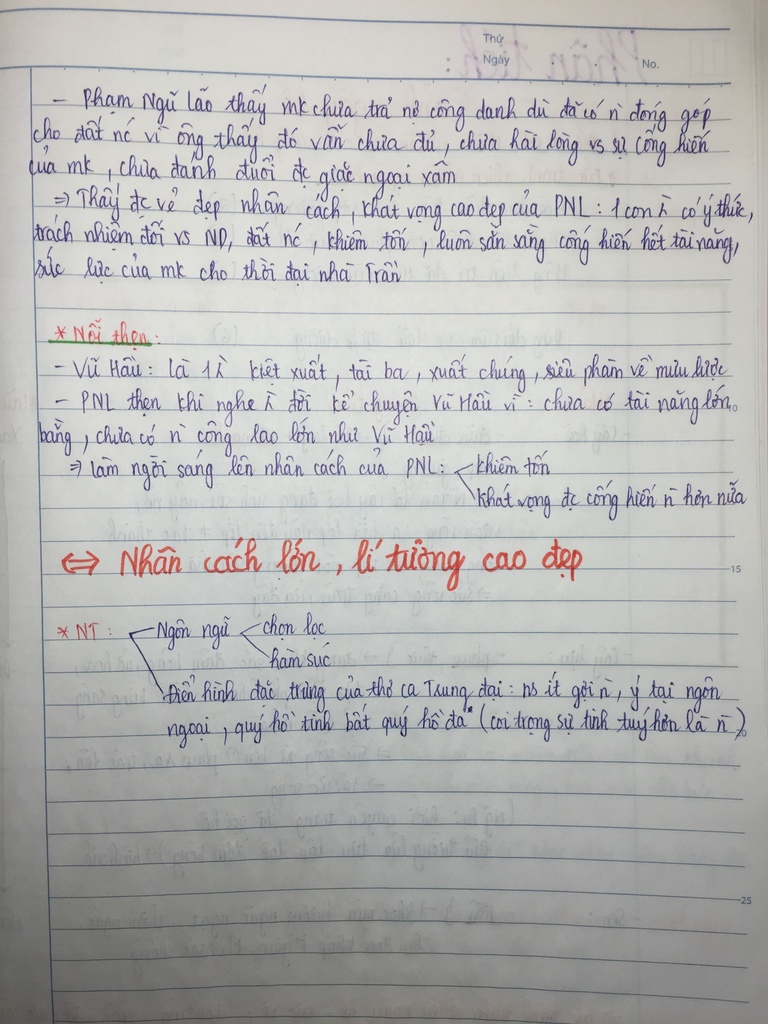 Thứ
Ngày
No.
- Phạm Ngũ Lão thấy mk chưa trả nợ công danh dù đã có n đóng góp
cho đất nc vì ông thấy đó vẫn chưa đủ, chưa hài lòng vs sự cống hiến
của mk, chưa đánh đuổi đc giặc ngoại xâm
⇒ Thấy đc vẻ đẹp nhân cách, khát vọng cao đẹp của PNL: 1 con ng có ý thức,
trách nhiệm đối vs ND, đất nc, khiêm tốn, luôn sẵn sàng cống hiến hết tài năng,
sức lực của mk cho thời đại nhà Trần
* Nỗi thẹn:
- Vũ Hầu: là 1 ng kiệt xuất, tài ba, xuất chúng, siêu phàm về mưu lược
- PNL thẹn khi nghe ng đời kể chuyện Vũ Hầu vì: chưa có tài năng lớn
bằng, chưa có n công lao lớn như Vũ Hầu
⇒ làm ngời sáng lên nhân cách của PNL: khiêm tốn
khát vọng đc cống hiến n hơn nữa
⇔ Nhân cách lớn, lí tưởng cao đẹp
15
* NT: Ngôn ngữ chọn lọc
hàm súc
Điển hình đặc trưng của thơ ca Trung đại: ns ít gợi n, ý tại ngôn
ngoại, quý hồ tinh bất quý hồ đa (coi trọng sự tinh tuý hơn là n).
25